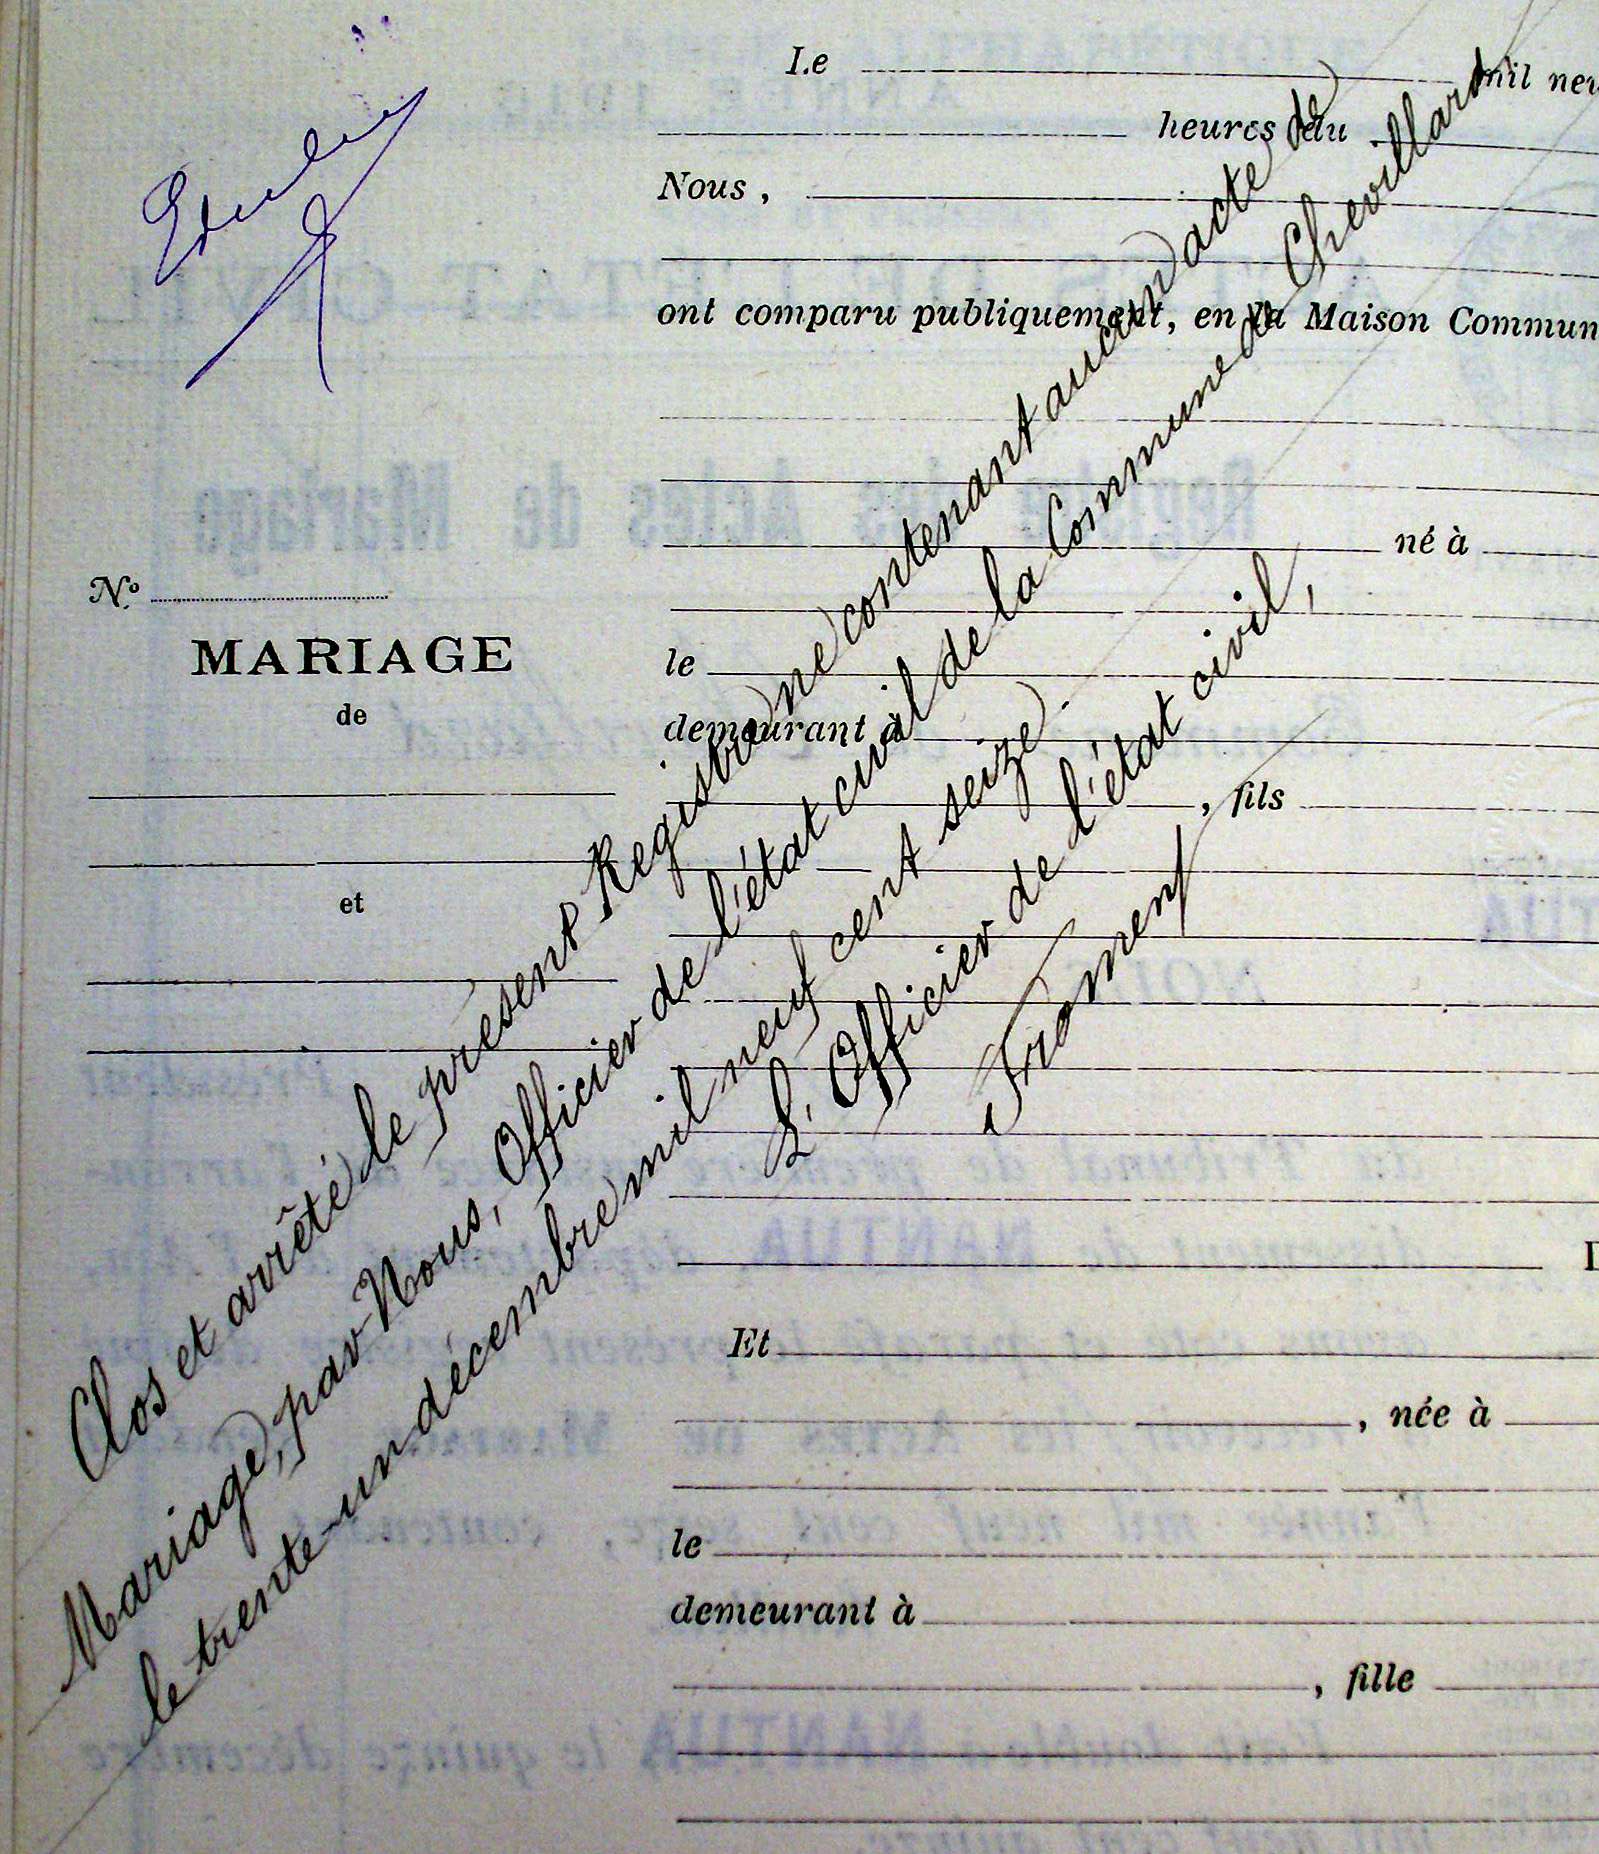 Le mil neu
heures du
Nous ,
ont comparu publiquement, en la Maison Commun
né à
le
demeurant à
, fils
Nº
MARIAGE
de
et
Clos et arrêté le présent Registre ne contenant aucun acte de
Mariage, par Nous, Officier de l'état civil de la Commune de Chevillard
le trente-un décembre mil neuf cent seize.
L'Officier de l'état civil,
Froment
Et
, née à
le
demeurant à
, fille